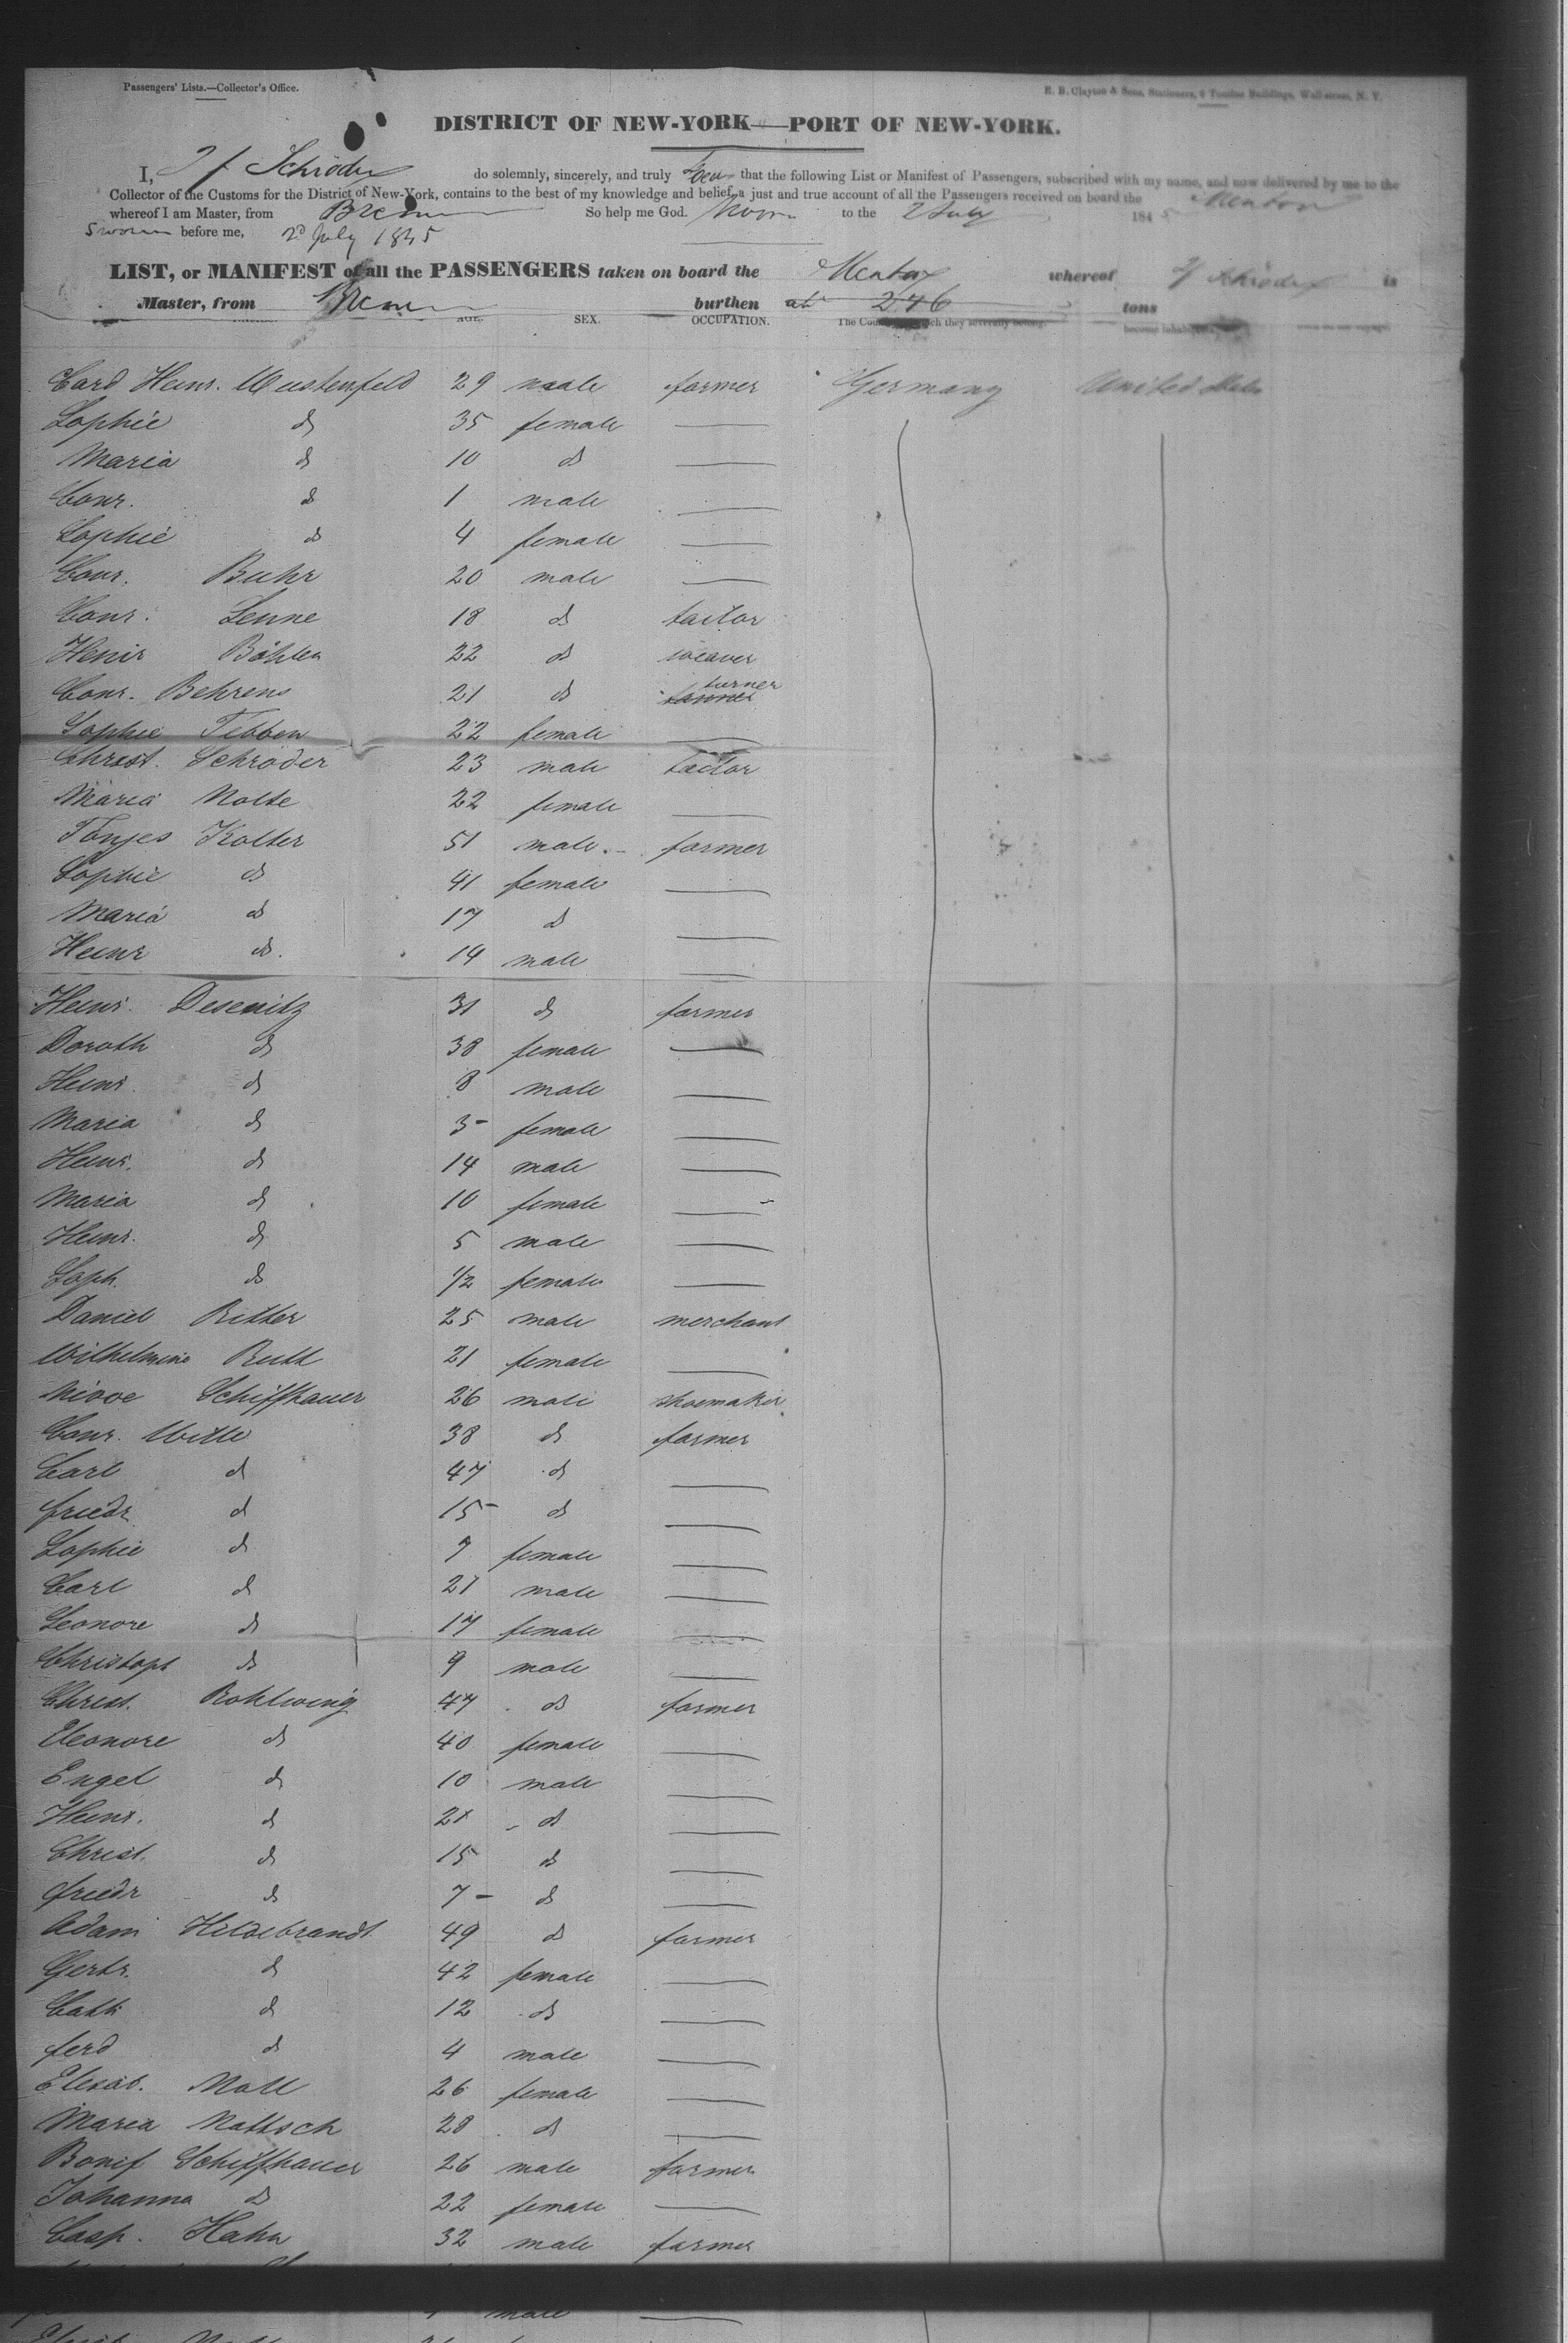 Passengers' Lists.—Collector's Office.
E. B. Clayton & Sons, Stationers, 6 Tontine Buildings, Wall-street, N. Y.
DISTRICT OF NEW-YORK—PORT OF NEW-YORK.
I, J Schroder do solemnly, sincerely, and truly that the following List or Manifest of Passengers, subscribed with my name, and now delivered by me to the
Collector of the Customs for the District of New-York, contains to the best of my knowledge and belief, a just and true account of all the Passengers received on board the
whereof I am Master, from Bremen So help me God. to the 2 July 1845
Sworn before me, 2d July 1845
LIST, or MANIFEST of all the PASSENGERS taken on board the whereof J Schroder is
Master, from Bremen burthen 246 tons
AGE. SEX. OCCUPATION. The Country to which they severally belong. become inhabitants
Card Heinr. Wustenfeld 29 male farmer Germany United States
Sophie do 35 female —
Maria do 10 do —
Conr. do 1 male —
Sophie do 4 female —
Conr. Buhr 20 male —
Conr. Lenne 18 do tailor
Henir Böhlen 22 do weaver
Conr. Behrens 21 do tanner turner
Sophie Tebben 22 female —
Christ. Schröder 23 male tailor
Maria Nolte 22 female —
Tönjes Kolter 51 male farmer
Sophie do 41 female —
Maria do 17 do —
Heinr do 14 male —
Heinr. Desenitz 31 do farmer
Doroth do 38 female —
Heinr. do 8 male —
Maria do 3 female —
Heinr. do 14 male —
Maria do 10 female —
Heinr. do 5 male —
Soph. do 1/2 female —
Daniel Ritter 25 male merchant
Wilhelmine 21 female —
Schiffhauer 26 male shoemaker
Conr. Witte 38 do farmer
Carl do 47 do —
friedr do 15 do —
Sophie do 7 female —
Carl do 21 male —
Leonore do 17 female —
Christoph do 9 male —
Christ. Rohlwing 47 do farmer
Eleonore do 40 female —
Engel do 10 male —
Heinr. do 21 do —
Christ. do 15 do —
friedr do 7 do —
Adam Hildebrandt 49 do farmer
Gertr. do 42 female —
Cath do 12 do —
ferd do 4 male —
Elisab. Noll 26 female —
Maria Nattsch 28 do —
Bonif Schiffhauer 26 male farmer
Johanna do 22 female —
Casp. Hahn 32 male farmer
male —